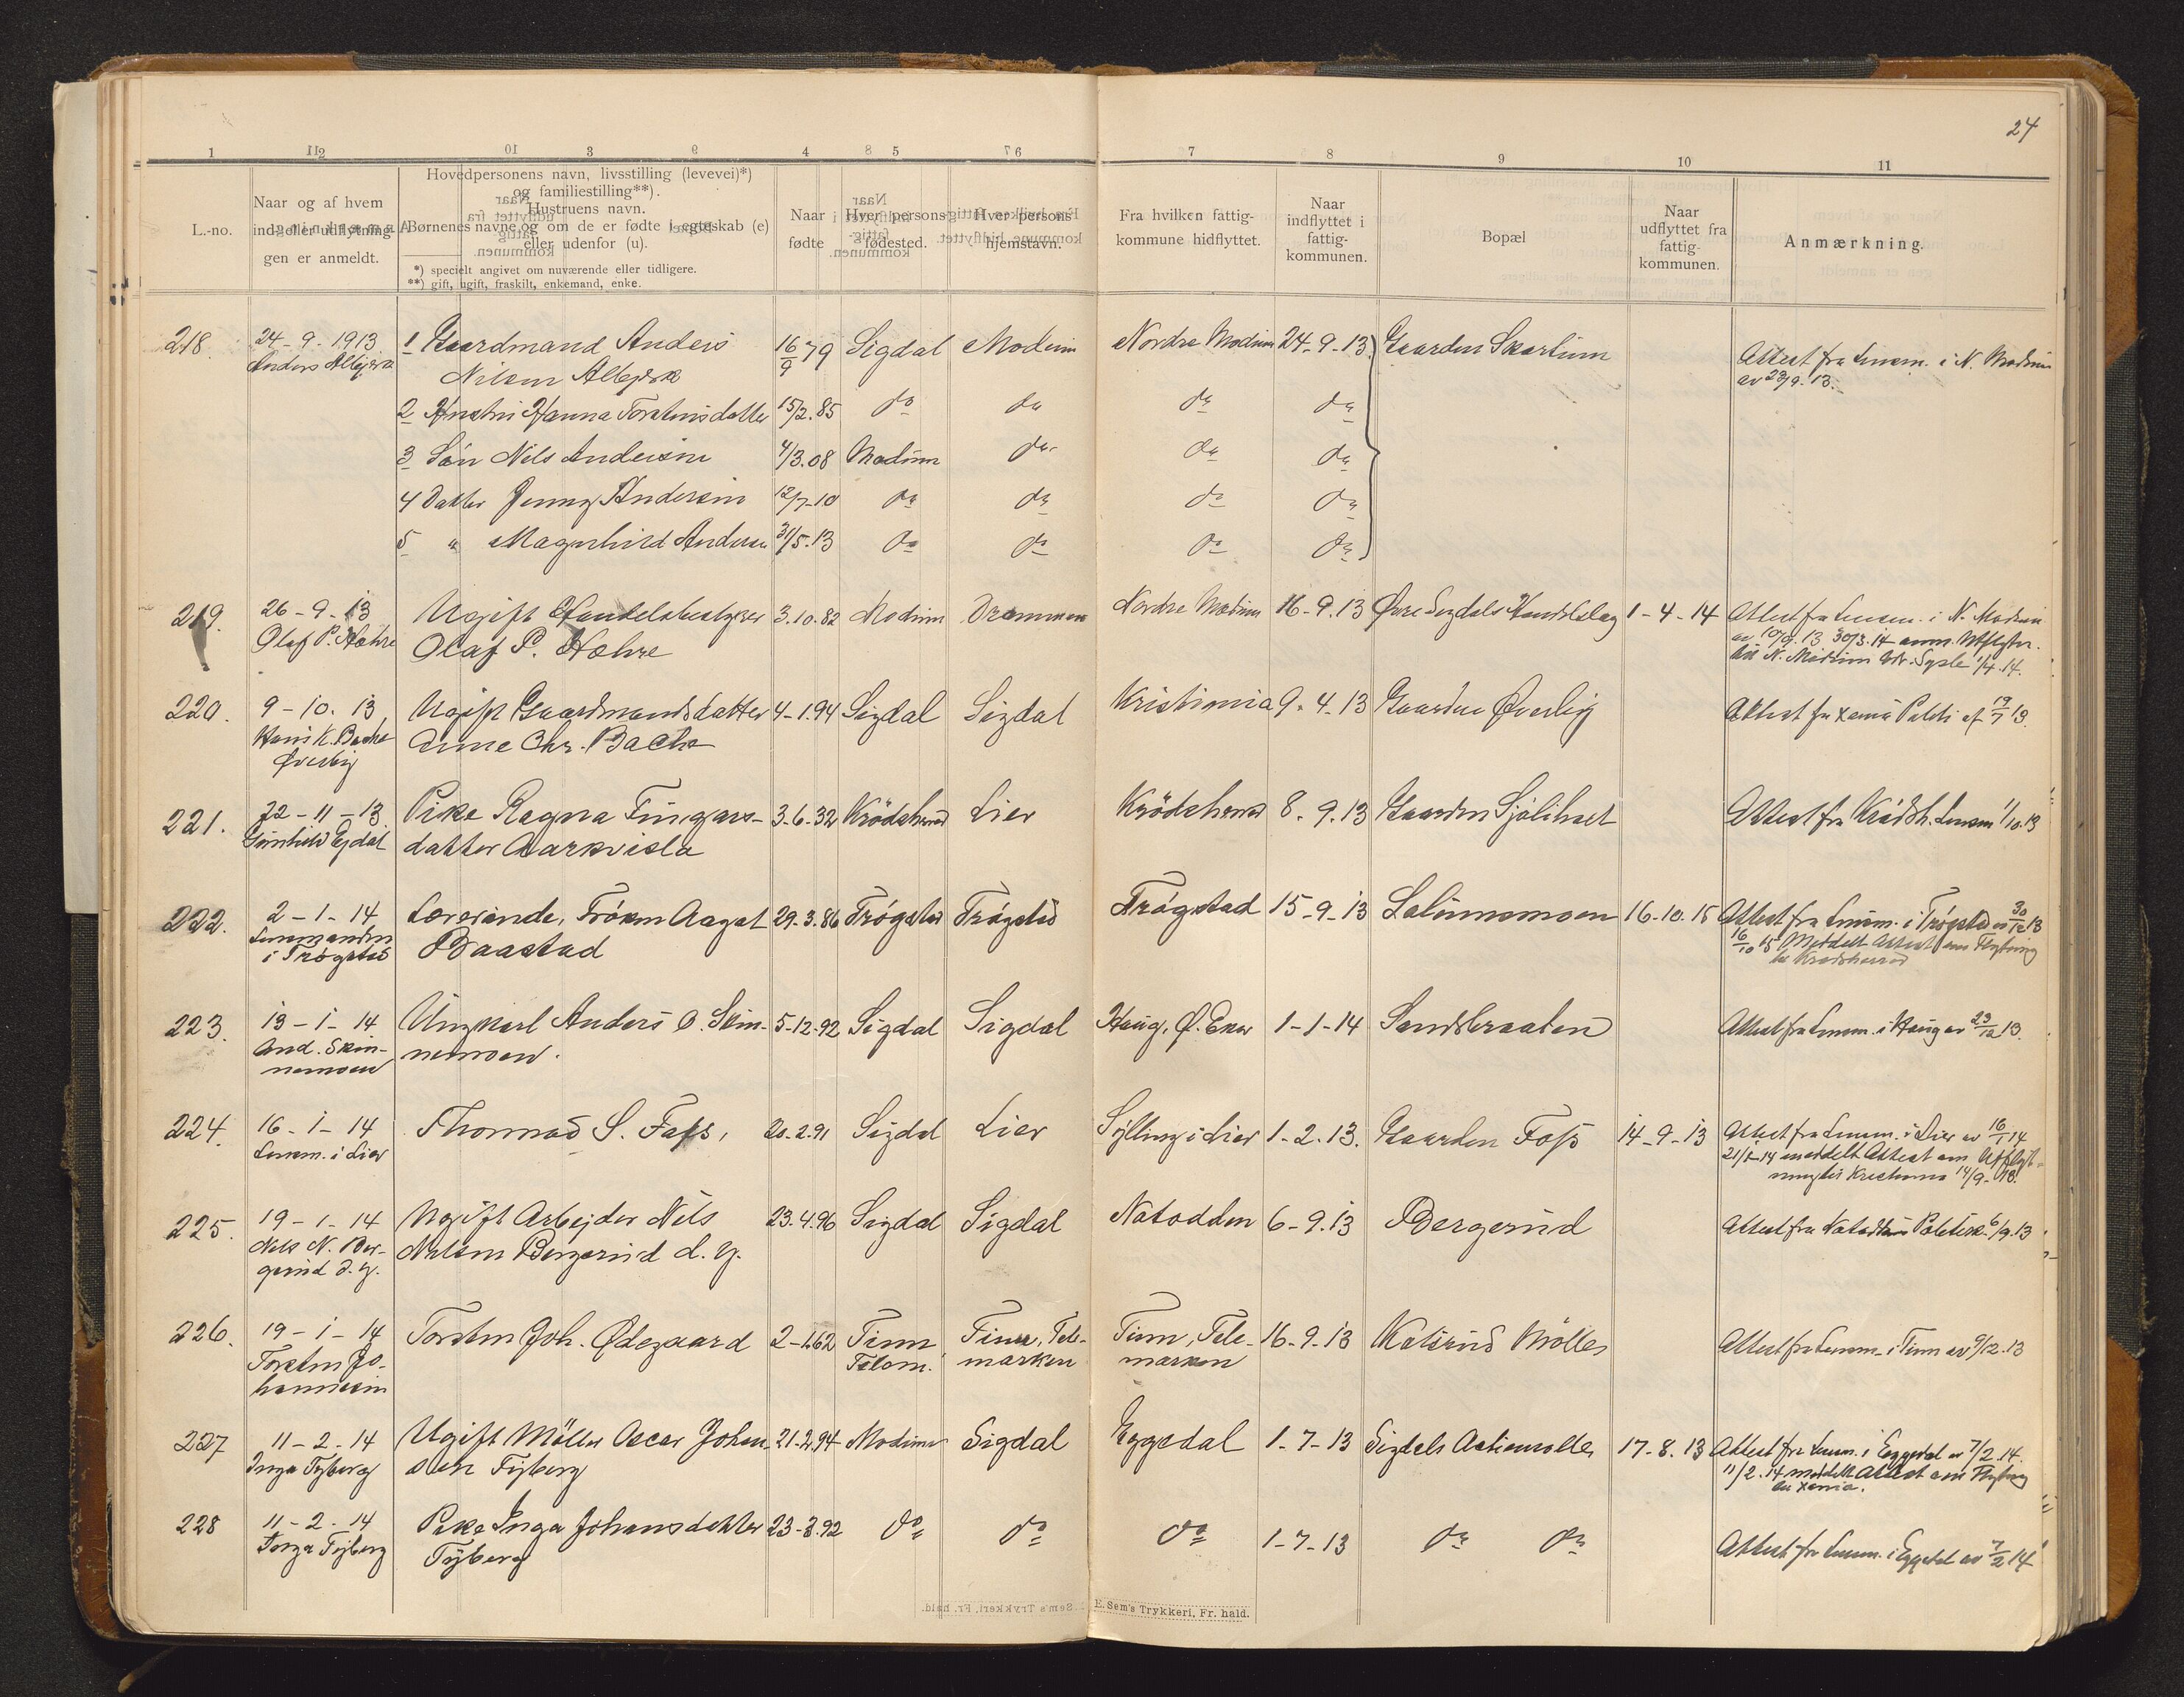 24
1 2 3 4 5 6 7 8 9 10 11
L.-no.
Naar og af hvem
ind- eller udflytnin-
gen er anmeldt.
Hovedpersonens navn, livsstilling (levevei)*)
og familiestilling**).
Hustruens navn.
Børnenes navne og om de er fødte i egteskab (e)
eller udenfor (u).
*) specielt angivet om nuværende eller tidligere.
**) gift, ugift, fraskilt, enkemand, enke.
Naar
fødte
Hver persons
fødested.
Hver persons
hjemstavn.
Fra hvilken fattig-
kommune hidflyttet.
Naar
indflyttet i
fattig-
kommunen.
Bopæl
Naar
udflyttet fra
fattig-
kommunen.
Anmærkning.
218. 24-9-1913 1 Gaardmand Anders 16/9 79 Sigdal Modum Nordre Modum 24-9-13 Gaarden Skartum Attest fra Lensm. i N. Modum
Nilsen av 23/9.13.
2 Hustru Hanna Torstensdatter 15/2.85 do do do do
3 Søn Nils Andersen 4/3.08 Modum do do do
4 Datter Jenny Andersen 12/7-10 do do do do
5 " Magnhild Andersen 31/5.13 do do do do
219. 26-9-13 Ugift Handelsbestyrer 3.10.82 Modum Drammen Nordre Modum 16-9.13 Øvre Sigdals Handelslag 1-4-14 Attest fra Lensm. i N. Modum
Olaf P. Hæhre Olaf P. Hæhre av 10/9.13 30/3.14 anm. Utflytn.
til N. Modum 1/4.14.
220. 9-10.13 Ugift Gaardmandsdatter 4-1.94 Sigdal Sigdal Kristiania 9.4.13 Gaarden Øverby Attest fra Xania Politi af 19/7 13.
Hans K. Bache Anne Chr. Bache
Øverby
221. 22-11-13 Pike Ragna Fingars- 3-6-32 Krödsherad Lier Krödsherad 8.9.13 Gaarden Attest fra Krødsh. Lensm 1/10.13
datter
222. 2-1-14 Lærerinde, Frøken Aagot 29.3.86 Trøgstad Trøgstad Trøgstad 15-9-13 16-10.15 Attest fra Lensm. i Trøgstad 30/12 13
Lensmanden Baastad 16/10 15 Meddelt Attest om Flytning
i Trøgstad til Krødsherad
223. 13-1-14 Ungkarl Anders O. Skin- 5-12-92 Sigdal Sigdal Haug, Ø. Eker 1-1-14 Sandsbraaten Attest fra Lensm. i Haug av 23/12 13.
And. Skin- nemoen.
nemoen
224. 16-1-14 Thomas S. Foss, 20-2.91 Sigdal Lier Sylling i Lier 1-2.13. Gaarden Foss 14-9-13 Attest fra Lensm. i Lier av 16/1 14
Lensm. i Lier 21/1-14 meddelt Attest om Utflyt-
ning til Kristiania 14/9-13.
225. 19-1-14 Ugift Arbejder Nils 23.4.96 Sigdal Sigdal Notodden 6-9.13 Bergerud Attest fra Notodden 6/9.13
Nils N. Ber- Nilsen Bergerud d.y.
gerud d.y.
226. 19-1-14 Torsten Joh. Ødegaard 2-1.62 Tinn Tinn, Tele- Tinn, Tele- 16-9.13 Mølle Attest fra Lensm. i Tinn av 9/12.13
Torsten Jo- Telem. marken marken
hannesen
227 11-2-14 Ugift Møller Oscar Johan 21-2.94 Modum Sigdal Eggedal 1-7-13 Sigdals Actiemølle 17-8.13 Attest fra Lensm. i Eggedal av 7/2.14.
Inga Fyberg sen Fyberg 11/2.14 meddelt Attest om Flytning
til Xania.
228 11-2-14 Pike Inga Johansdatter 23-3.92 do do do 1-7-13 do do Attest fra Lensm. i Eggedal av 7/2 14
Inga Fyberg Fyberg
E. Sem's Trykkeri, Fr. hald.